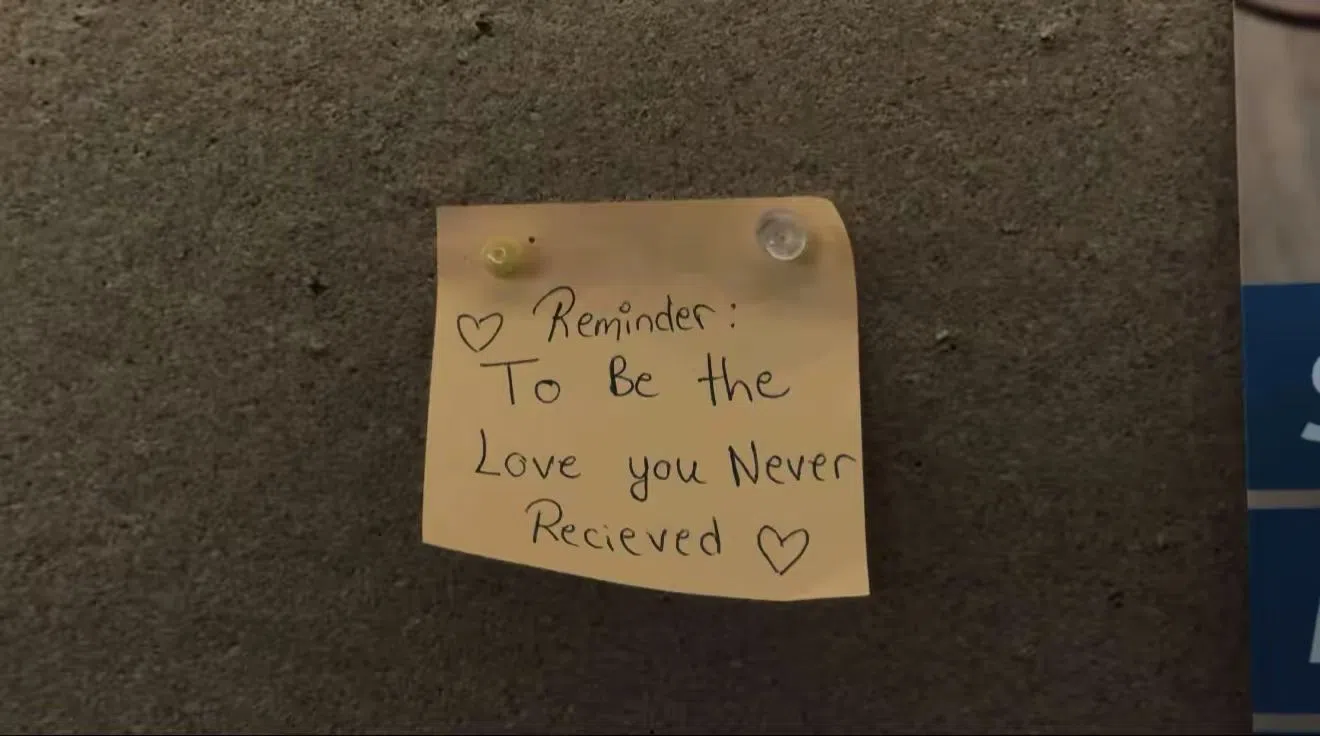 ♡ Reminder:
To Be the
Love you Never
Recieved ♡